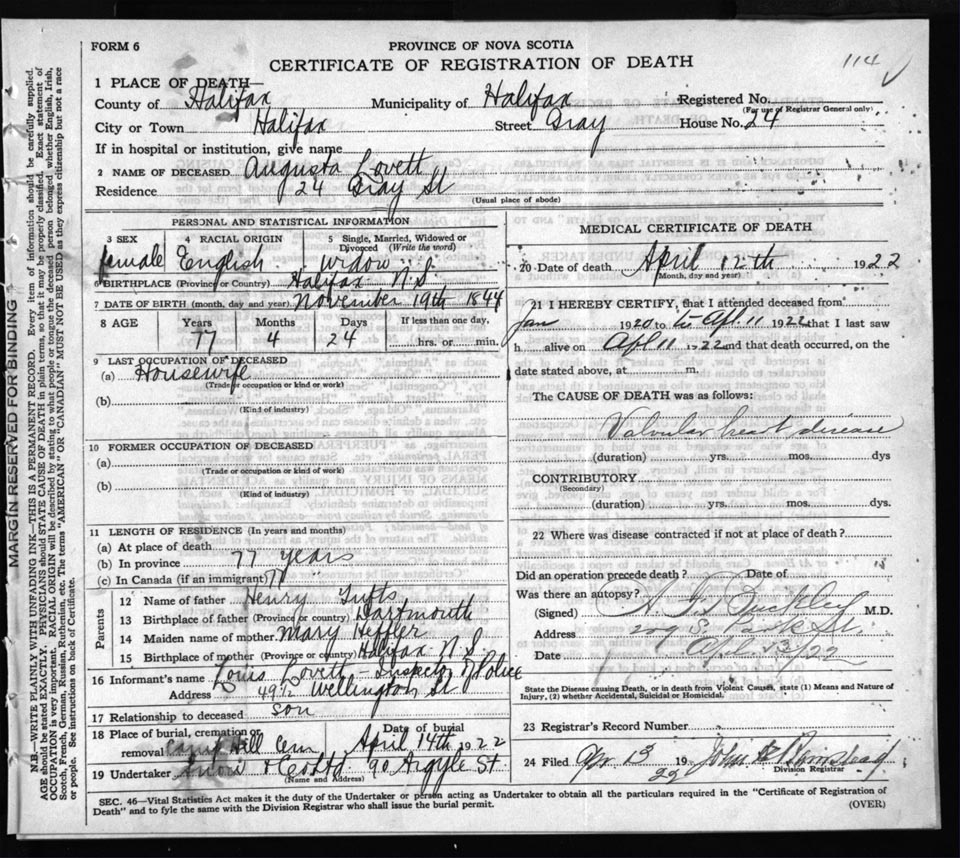 FORM 6
PROVINCE OF NOVA SCOTIA
CERTIFICATE OF REGISTRATION OF DEATH
114
1 PLACE OF DEATH—
County of Halifax Municipality of Halifax Registered No.
(For use of Registrar General only)
City or Town Halifax Street Gray House No. 24
If in hospital or institution, give name
2 NAME OF DECEASED Augusta Lovett
Residence 24 Gray St
(Usual place of abode)
PERSONAL AND STATISTICAL INFORMATION
3 SEX 4 RACIAL ORIGIN 5 Single, Married, Widowed or
Divorced (Write the word)
female English widow
6 BIRTHPLACE (Province or Country) Halifax N.S.
7 DATE OF BIRTH (month, day and year) November 19th 1844
8 AGE Years Months Days If less than one day,
77 4 24 hrs. or min.
9 LAST OCCUPATION OF DECEASED
(a) Housewife
(Trade or occupation or kind of work)
(b)
(Kind of industry)
10 FORMER OCCUPATION OF DECEASED
(a)
(Trade or occupation or kind of work)
(b)
(Kind of industry)
11 LENGTH OF RESIDENCE (In years and months)
(a) At place of death
(b) In province 77 years
(c) In Canada (if an immigrant) 77 "
Parents
12 Name of father Henry Tufts
13 Birthplace of father (Province or country) Dartmouth
14 Maiden name of mother Mary Heffler
15 Birthplace of mother (Province or country) Halifax N.S.
16 Informant's name Louis Lovett Inspector Police
Address 49½ Wellington St
17 Relationship to deceased son
18 Place of burial, cremation or Date of burial
removal Camp Hill Cem April 14th 1922
19 Undertaker Snow & Co Ltd 90 Argyle St
(Name and Address)
MEDICAL CERTIFICATE OF DEATH
20 Date of death April 12th 1922
(Month, day and year)
21 I HEREBY CERTIFY, that I attended deceased from
Jan 1920 to Apl 11 1922 that I last saw
h alive on Apl 11 1922 and that death occurred, on the
date stated above, at m.
The CAUSE OF DEATH was as follows:
Valvular heart disease
(duration) yrs. mos. dys
CONTRIBUTORY
(Secondary)
(duration) yrs. mos. dys.
22 Where was disease contracted if not at place of death?
Did an operation precede death? Date of
Was there an autopsy?
(Signed) Buckley M.D.
Address St.
Date Apl 13/22
State the Disease causing Death, or in death from Violent Causes, state (1) Means and Nature of
Injury, (2) whether Accidental, Suicidal or Homicidal.
23 Registrar's Record Number
24 Filed Apr 13 19 22 John
Division Registrar
SEC. 46—Vital Statistics Act makes it the duty of the Undertaker or person acting as Undertaker to obtain all the particulars required in the "Certificate of Registration of
Death" and to fyle the same with the Division Registrar who shall issue the burial permit.
(OVER)
MARGIN RESERVED FOR BINDING
N.B.—WRITE PLAINLY WITH UNFADING INK—THIS IS A PERMANENT RECORD. Every item of information should be carefully supplied.
AGE should be stated EXACTLY. PHYSICIANS should STATE CAUSE OF DEATH in plain terms, so that it may be properly classified. Exact statement of
OCCUPATION is very important. RACIAL ORIGIN will be described by stating to what people or tongue the deceased person belonged whether English, Irish,
Scotch, French, German, Russian, Ruthenian, etc. The terms "AMERICAN" OR "CANADIAN" MUST NOT BE USED as they express citizenship but not a race
or people. See instructions on back of Certificate.